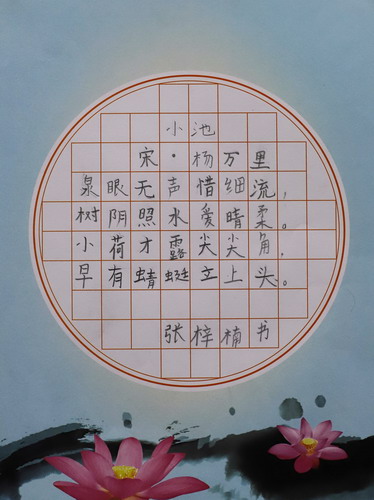 小池
宋·杨万里
泉眼无声惜细流，
树阴照水爱晴柔。
小荷才露尖尖角，
早有蜻蜓立上头。
张梓楠书